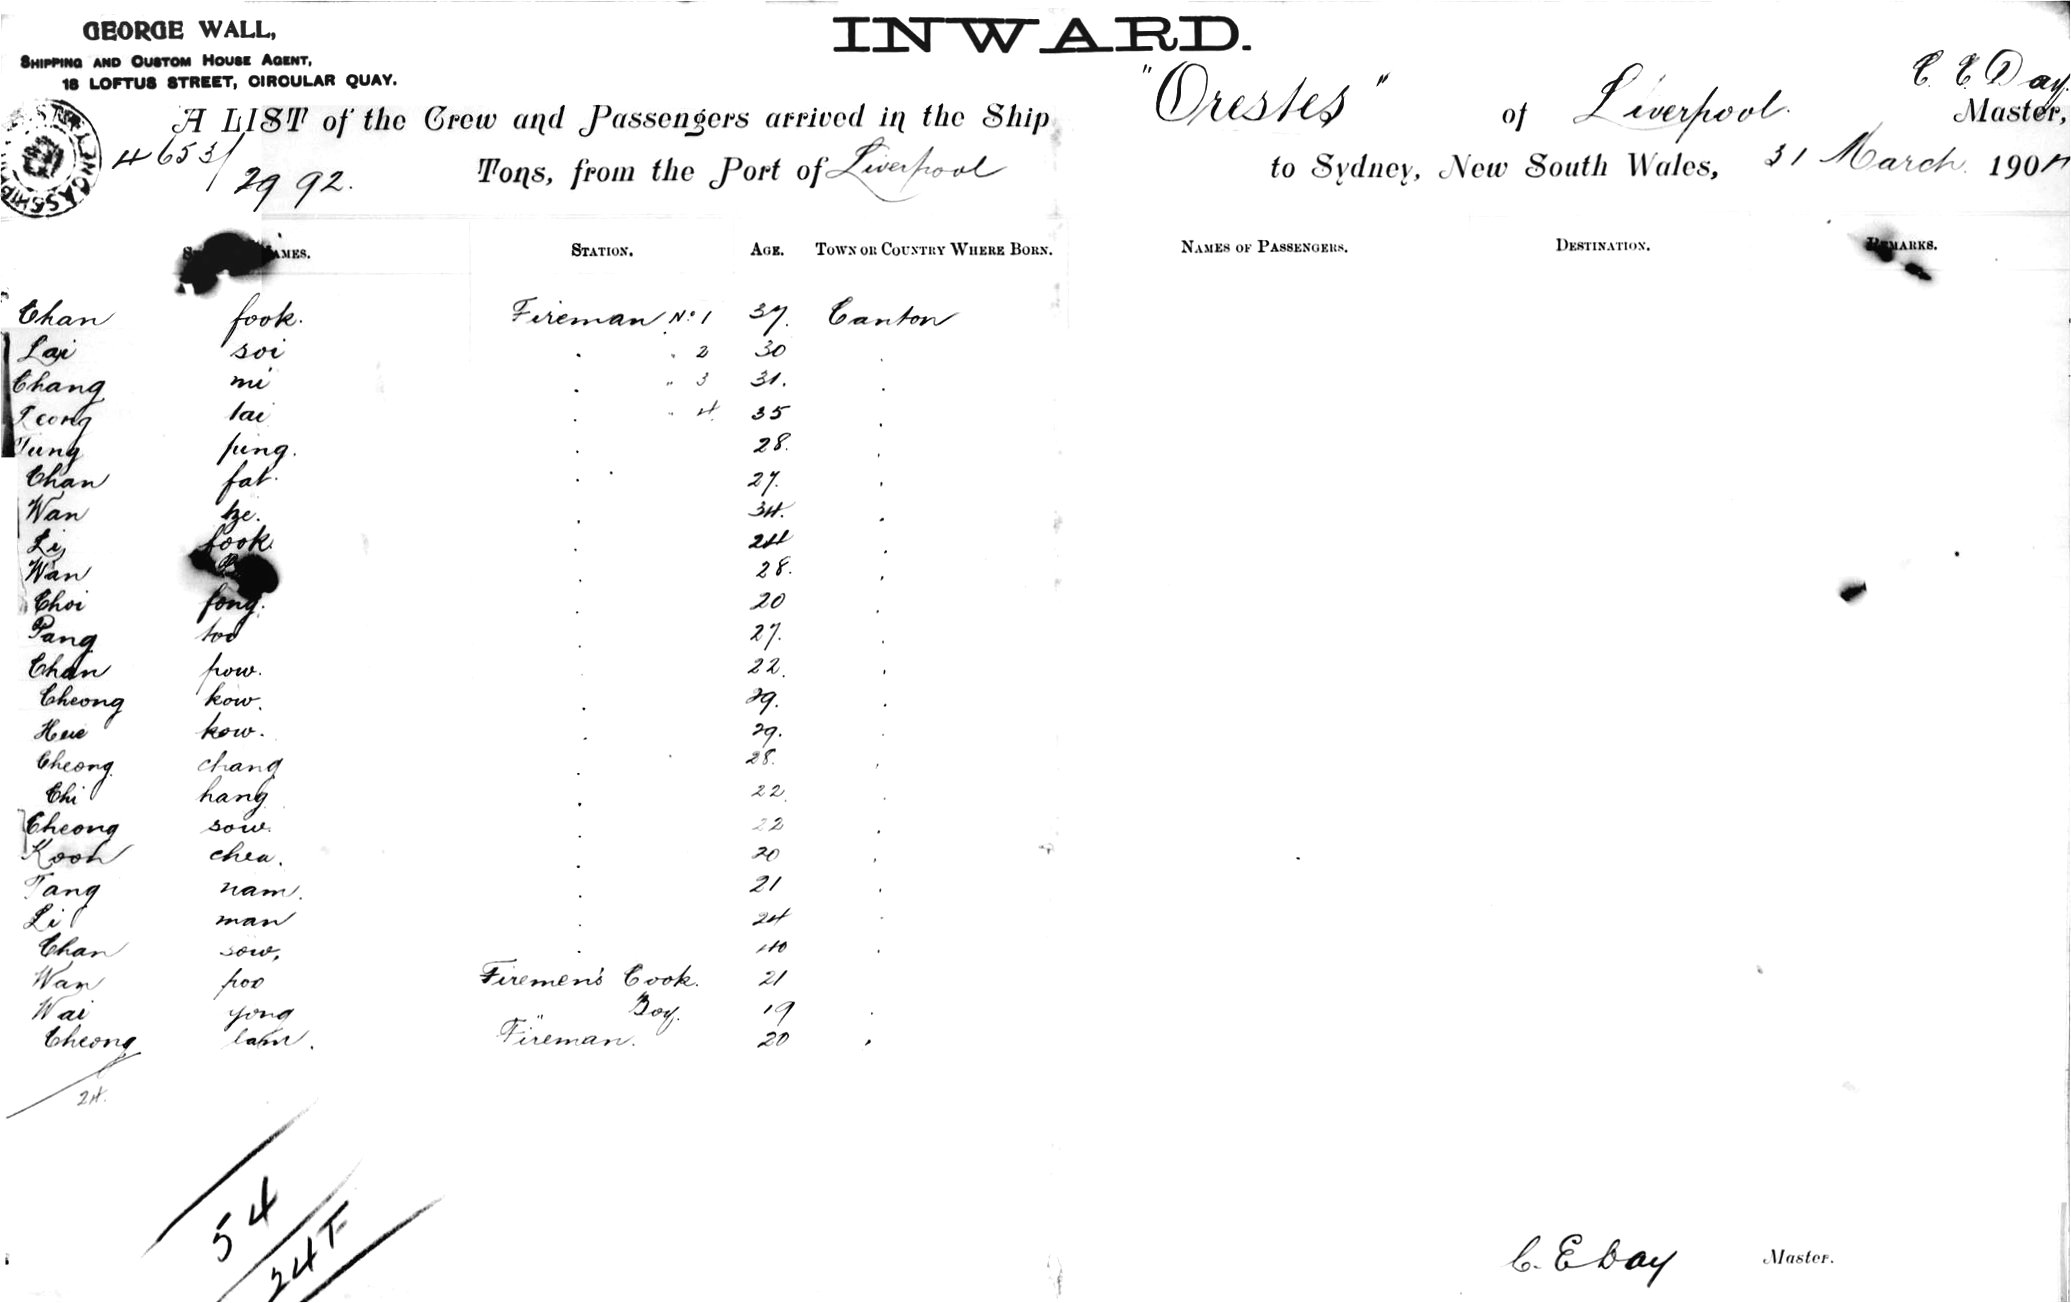 GEORGE WALL,
SHIPPING AND CUSTOM HOUSE AGENT,
18 LOFTUS STREET, CIRCULAR QUAY.
INWARD.
A LIST of the Crew and Passengers arrived in the Ship "Orestes" of Liverpool. C. E. Day. Master,
4653/2992. Tons, from the Port of Liverpool to Sydney, New South Wales, 31 March. 190
NAMES. STATION. AGE. TOWN OR COUNTRY WHERE BORN. NAMES OF PASSENGERS. DESTINATION. REMARKS.
Chan fook. Fireman No 1 37. Canton
Lai soi . " 2 30 .
Chang mi . " 3 31. .
Leong tai . " 4 35 .
Tung ping. . 28. .
Chan fat. . 27. .
Wan tze. . 34. .
Li fook. . 24 .
Wan . 28. .
Choi fong. . 20 .
Pang too . 27. .
Chan pow. . 22. .
Cheong kow. . 29. .
Hue kow. . 29. .
Cheong chang . 28. .
Chi hang . 22. .
Cheong sow. . 22 .
Koon chea. . 20 .
Tang nam. . 21 .
Li man . 24 .
Chan sow. . 40 .
Wan poo Firemen's Cook. 21
Wai yong " Boy. 19 .
Cheong lam. Fireman. 20 .
24.
54
24 F
C. E Day Master.